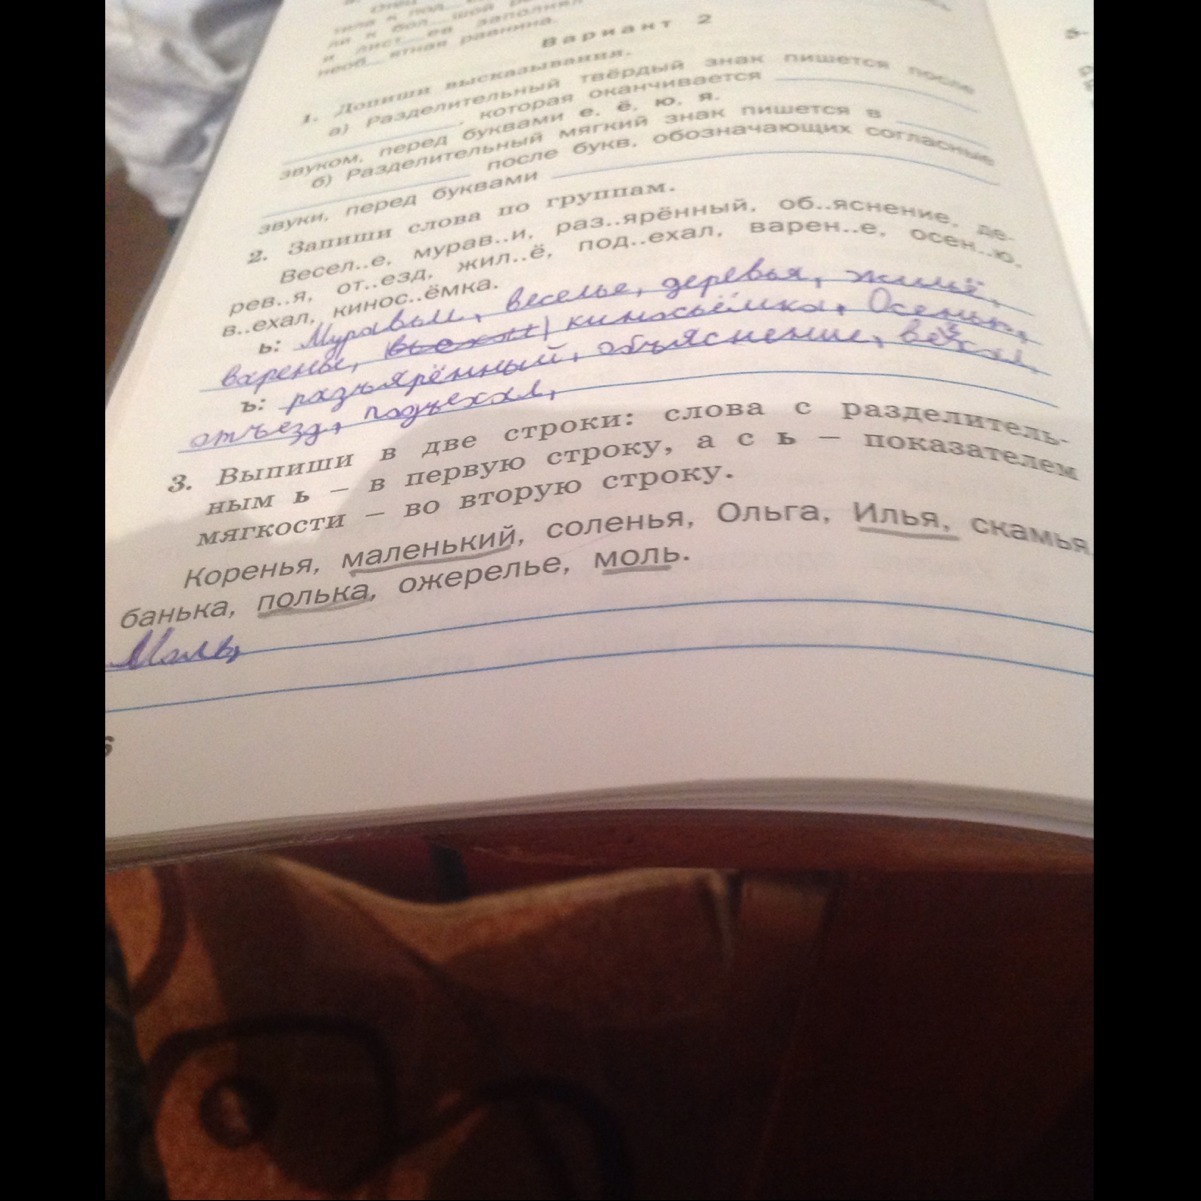 ли к бол...шой
и лист...ев заполнял
необ...ятная равнина.
Вариант 2
1. Допиши высказывания.
а) Разделительный твёрдый знак пишется после
, которая оканчивается
звуком, перед буквами е, ё, ю, я.
б) Разделительный мягкий знак пишется в
после букв, обозначающих согласные
звуки, перед буквами
2. Запиши слова по группам.
Весел..е, мурав..и, раз..ярённый, об..яснение, де-
рев..я, от..езд, жил..ё, под..ехал, варен..е, осен..ю,
в..ехал, кинос..ёмка.
ь: Муравьи, веселье, деревья, жильё,
варенье, въехал, киносьёмка, Осенью,
ъ: разъярённый, объяснение,
отъезд, подъехал,
3. Выпиши в две строки: слова с разделитель-
ным ь – в первую строку, а с ь – показателем
мягкости – во вторую строку.
Коренья, маленький, соленья, Ольга, Илья, скамья,
банька, полька, ожерелье, моль.
Моль,
6